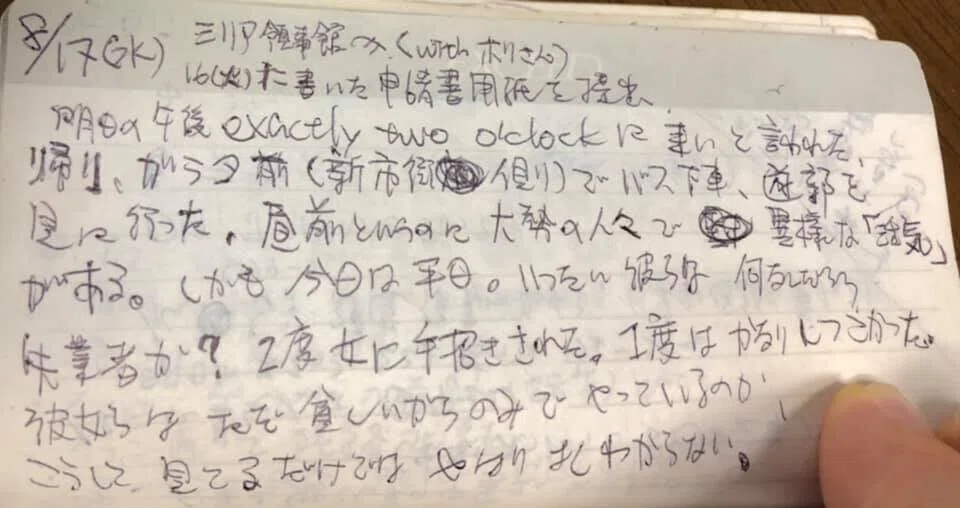 8/17(水) シリア領事館へ(with ホリさん)
16(火)に書いた申請書用紙を提出
明日の午後 exactly two o'clockに来いと言われた。
帰り、ガラタ前(新市街側)でバス下車、遊郭を
見に行った。昼前というのに大勢の人々で 異様な「活気」
がある。しかも今日は平日。いったい彼らは何なんだろう
失業者か?2度女に手招きされた。1度はかなりしつこかった。
彼女らはただ貧しいからのみでやっているのか、
こうして見てるだけではやはりよくわからない。